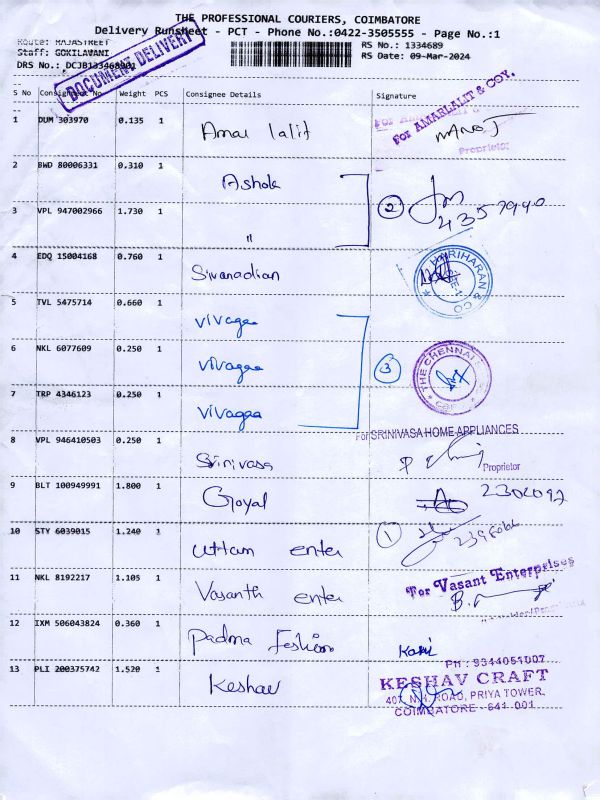 THE PROFESSIONAL COURIERS, COIMBATORE
Delivery Runsheet - PCT - Phone No.:0422-3505555 - Page No.:1
Route: RAJASTREET
Staff: GOKILAVANI
DRS No.: DCJB133468901
RS No.: 1334689
RS Date: 09-Mar-2024
DOCUMENT DELIVERY
S No Consignment No Weight PCS Consignee Details Signature
1 DUM 303970 0.135 1 Amar lalit
For AMARLALIT & COY.
Proprietor
2 BWD 80006331 0.310 1 Ashok
3 VPL 947002966 1.730 1 "
2
4357940
4 EDQ 15004168 0.760 1 Sivanadian
HARIHARAN & CO
5 TVL 5475714 0.660 1 Vivagaa
6 NKL 6077609 0.250 1 Vivagaa
7 TRP 4346123 0.250 1 Vivagaa
3
THE CHENNAI
8 VPL 946410503 0.250 1 Srinivasa
For SRINIVASA HOME APPLIANCES
Proprietor
9 BLT 100949991 1.800 1 Goyal
2302092
10 STY 6039015 1.240 1 Uttam enter
1
11 NKL 8192217 1.105 1 Vasanth enter
For Vasant Enterprises
12 IXM 506043824 0.360 1 Padma Feshion
13 PLI 200375742 1.520 1 Keshav
PH : 9344051007
KESHAV CRAFT
407, N.H. ROAD, PRIYA TOWER,
COIMBATORE - 641 001